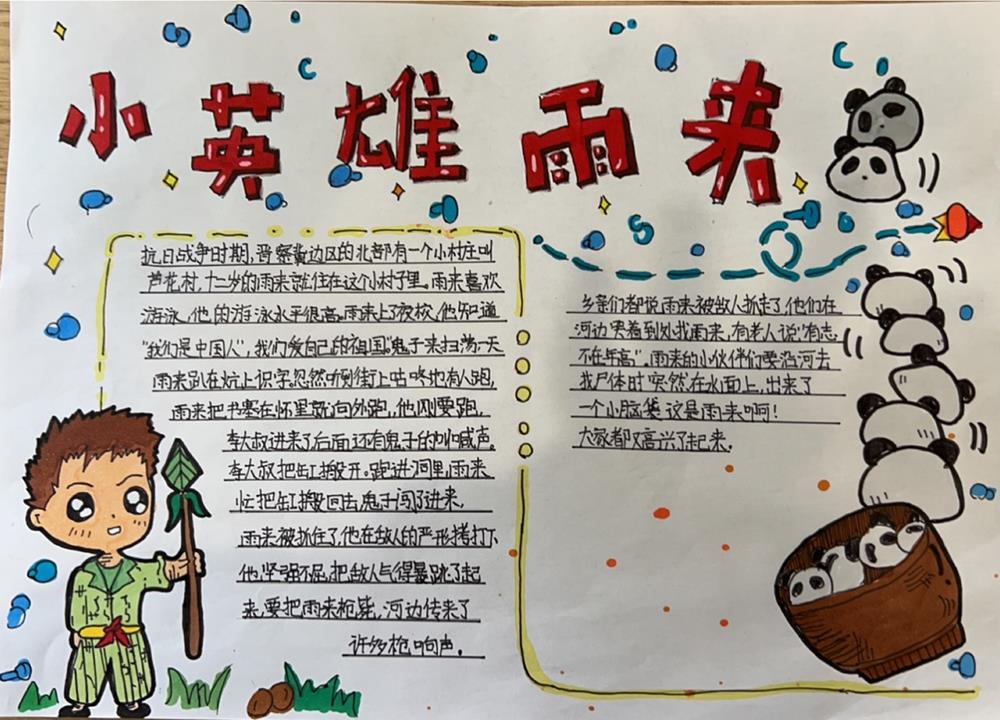 小英雄雨来
抗日战争时期，晋察冀边区的北部有一个小村庄叫
芦花村，十二岁的雨来就住在这个小村子里。雨来喜欢
游泳，他的游泳水平很高，雨来上了夜校，他知道
"我们是中国人"，我们爱自己的祖国。"鬼子来扫荡，一天
雨来趴在炕上识字，忽然听到街上咕咚地有人跑，
雨来把书塞在怀里就向外跑，他刚要跑，
李大叔进来了后面还有鬼子的叫喊声。
李大叔把缸搬开。跑进洞里，雨来
忙把缸搬回去，鬼子闯了进来，
雨来被抓住了，他在敌人的严形拷打下
他坚强不屈，把敌人气得暴跳了起
来，要把雨来枪毙，河边传来了
许多枪响声。
乡亲们都说雨来被敌人抓走了，他们在
河边哭着到处找雨来，有老人说"有志
不在年高"，雨来的小伙伴们要沿河去
找尸体时，突然在水面上，出来了
一个小脑袋，这是雨来啊！
大家都又高兴了起来。